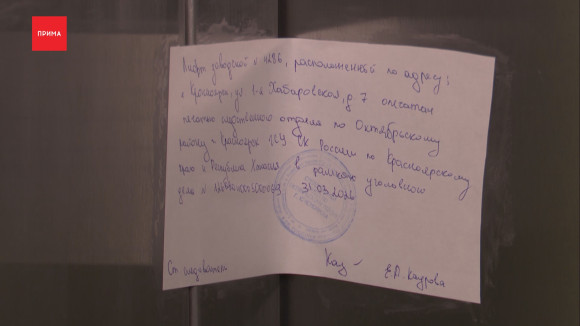 ПРИМА
Лифт заводской № 4286, расположенный по адресу:
г. Красноярск, ул. 1-я Хабаровская, д. 7 опечатан
печатью следственного отдела по Октябрьскому
району г. Красноярск ГСУ СК России по Красноярскому
краю и Республике Хакасия в рамках уголовного
дела № 31.03.2026
Ст. следователь Е.А.